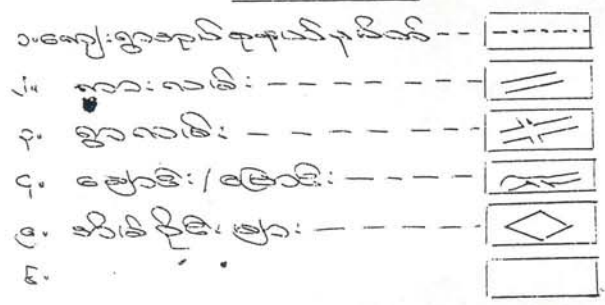 ၁။ကျေးရွာအုပ်စုနယ်နမိတ် - -
၂။ ကားလမ်း - - - - - -
၃။ ရွာလမ်း - - - - - -
၄။ ချောင်း/မြောင်း - - - -
၅။ အိမ်ဝိုင်းများ - - - - -
၆။